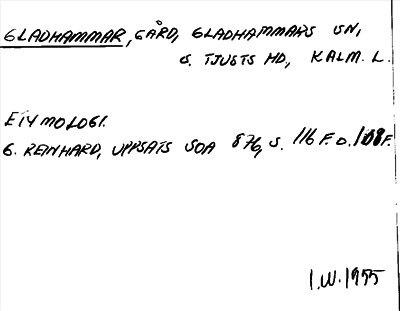 GLADHAMMAR, GÅRD, GLADHAMMARS SN,
S. TJUSTS HD, KALM. L.
ETYMOLOGI.
G. REINHARD, UPPSATS SOA 876, S. 116 F. O. 108 F.
I.W. 1955